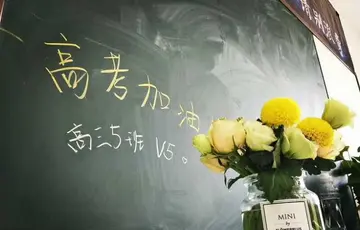 高考加油
高三5班 V5。
MINI
by